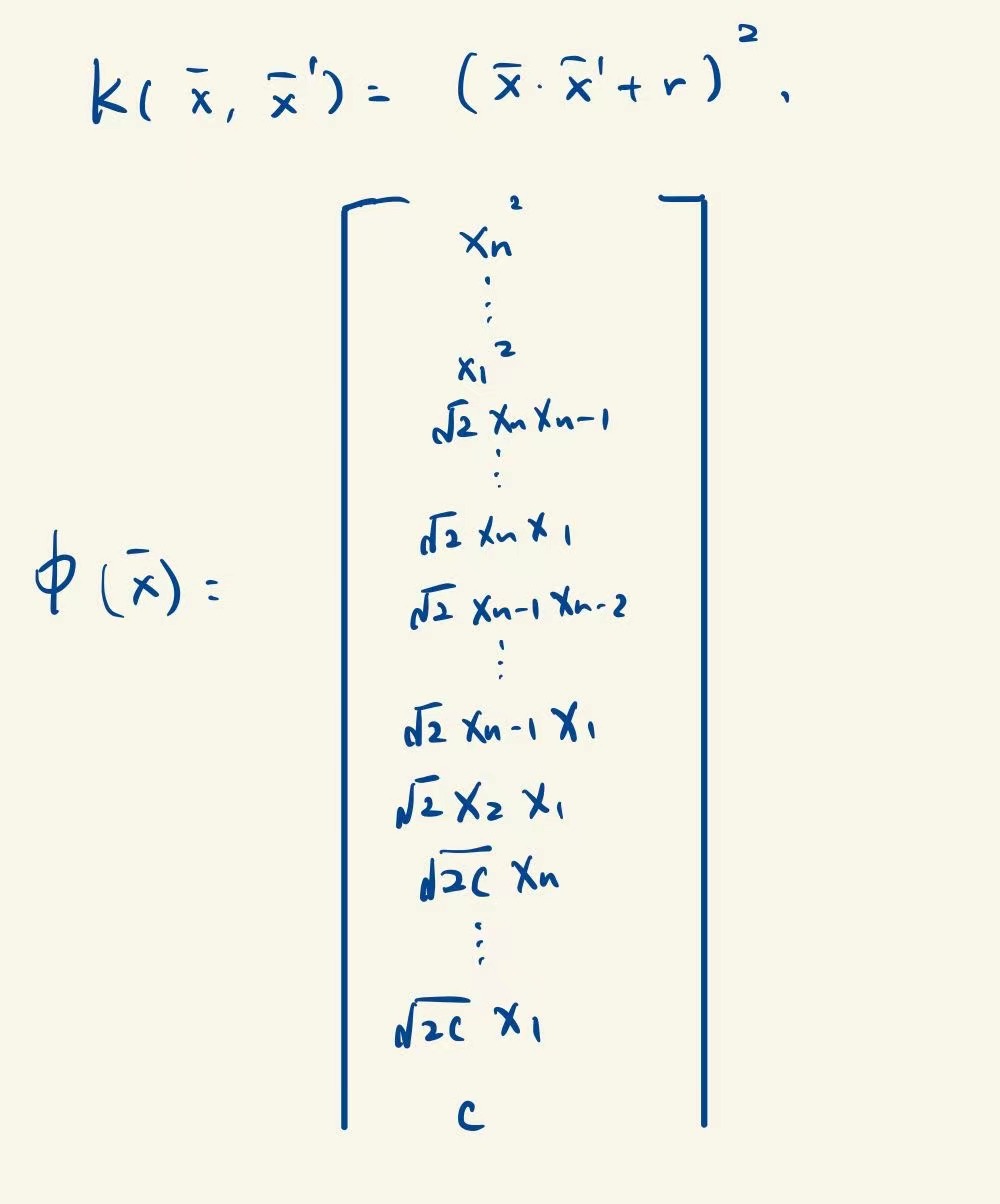 k( x̄, x̄') = (x̄ · x̄' + r)²,
xn²
⋮
x₁²
√2 xn xn-1
⋮
√2 xn x₁
√2 xn-1 xn-2
⋮
ϕ(x̄) =
√2 xn-1 x₁
√2 x₂ x₁
√2c xn
⋮
√2c x₁
c